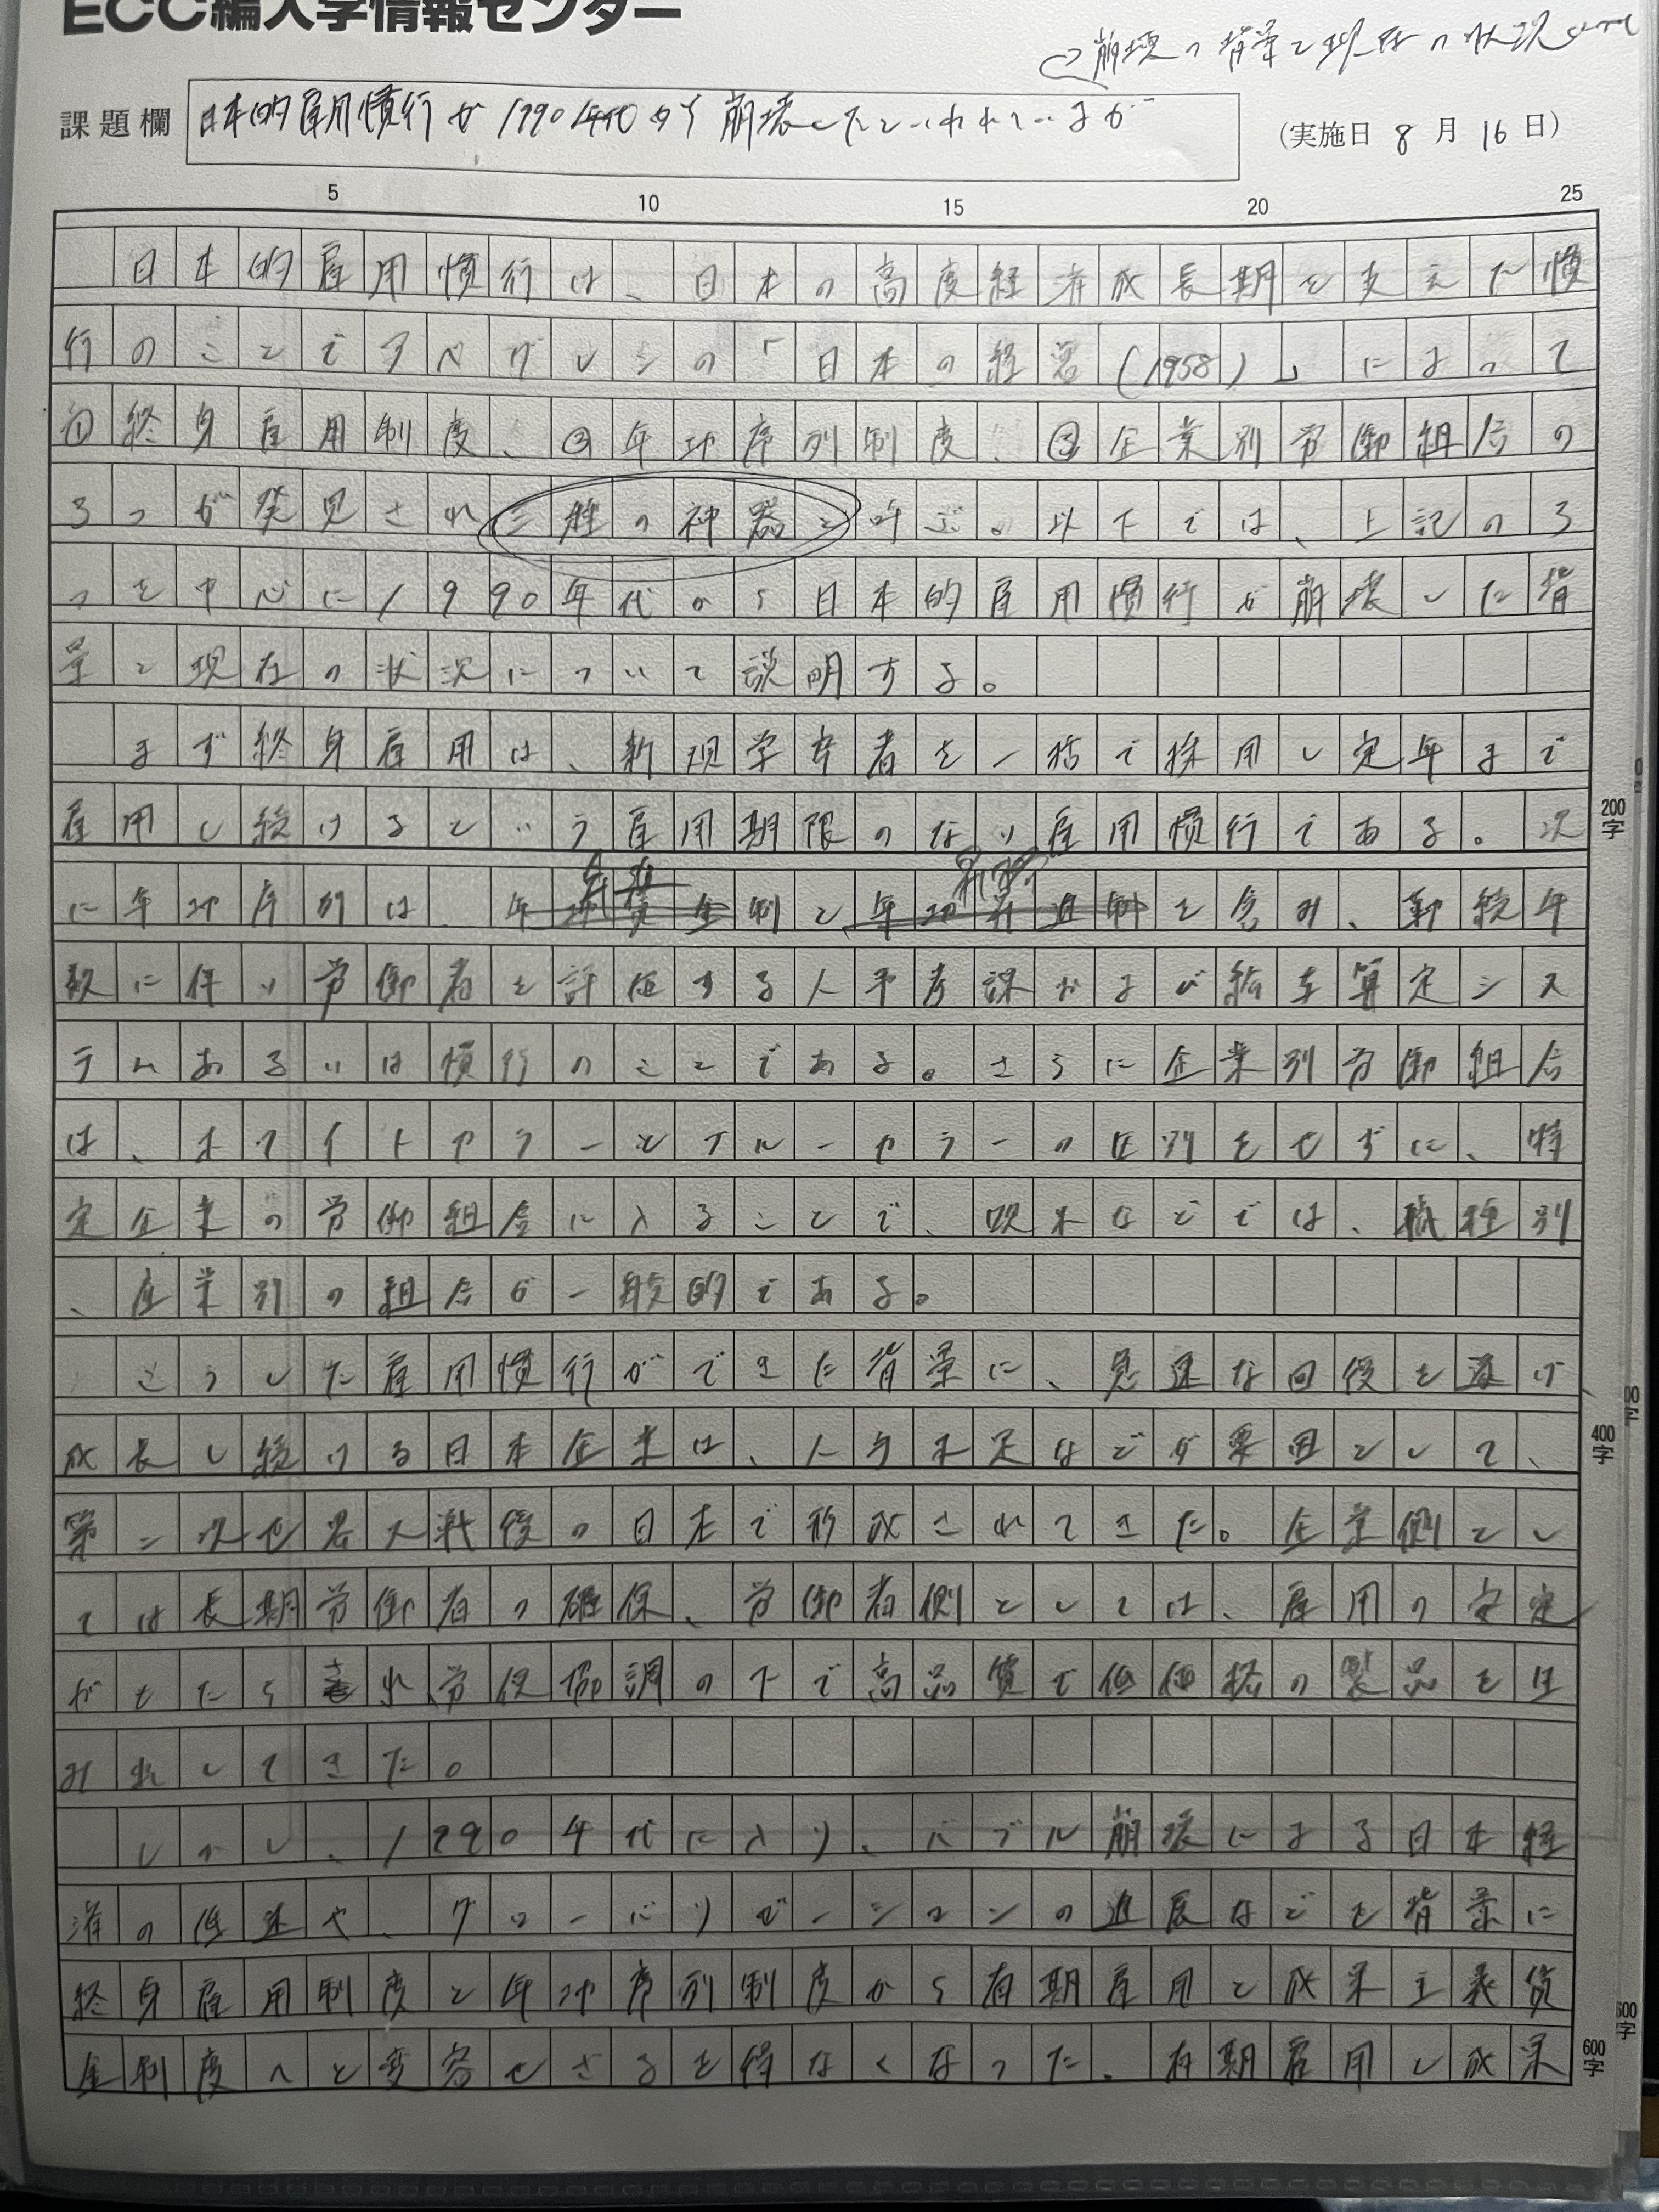 ECC編入学情報センター
崩壊の背景と現在の状況
課題欄
日本的雇用慣行が1990年代から崩壊したといわれているが
(実施日 8 月 16 日)
5 10 15 20 25
日本的雇用慣行は、日本の高度経済成長期を支えた慣
行のことでアベグレンの「日本の経営(1958)」によって
①終身雇用制度、②年功序列制度、③企業別労働組合の
3つが発見され三種の神器と呼ぶ。以下では、上記の3
つを中心に1990年代から日本的雇用慣行が崩壊した背
景と現在の状況について説明する。
まず終身雇用は、新規学卒者を一括で採用し定年まで
雇用し続けるという雇用期限のない雇用慣行である。次
200字
に年功序列は、年功賃金制と年功昇進制を含み、勤続年
数に伴い労働者を評価する人事考課および給与算定シス
テムあるいは慣行のことである。さらに企業別労働組合
は、ホワイトカラーとブルーカラーの区別をせずに、特
定企業の労働組合に入ることで、欧米などでは、職種別
、産業別の組合が一般的である。
こうした雇用慣行ができた背景に、急速な回復を遂げ
成長し続ける日本企業は、人手不足などが要因として、
400字
第二次世界大戦後の日本で形成されてきた。企業側とし
ては長期労働者の確保、労働者側としては、雇用の安定
がもたらされ、労使協調の下で高品質で低価格の製品を生
み出してきた。
しかし、1990年代に入り、バブル崩壊による日本経
済の低迷や、グローバリゼーションの進展などを背景に
終身雇用制度と年功序列制度から有期雇用と成果主義賃
金制度へと変容せざるを得なくなった。有期雇用し成果
600字